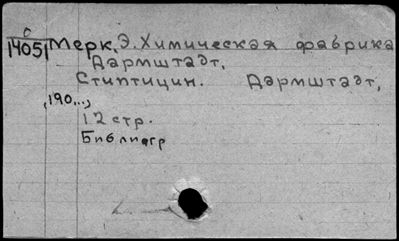 0
14051 Мерк, Э. Химическая фабрика
Дармштадт.
Стиптицин. Дармштадт,
,190...,
12 стр.
Библиогр